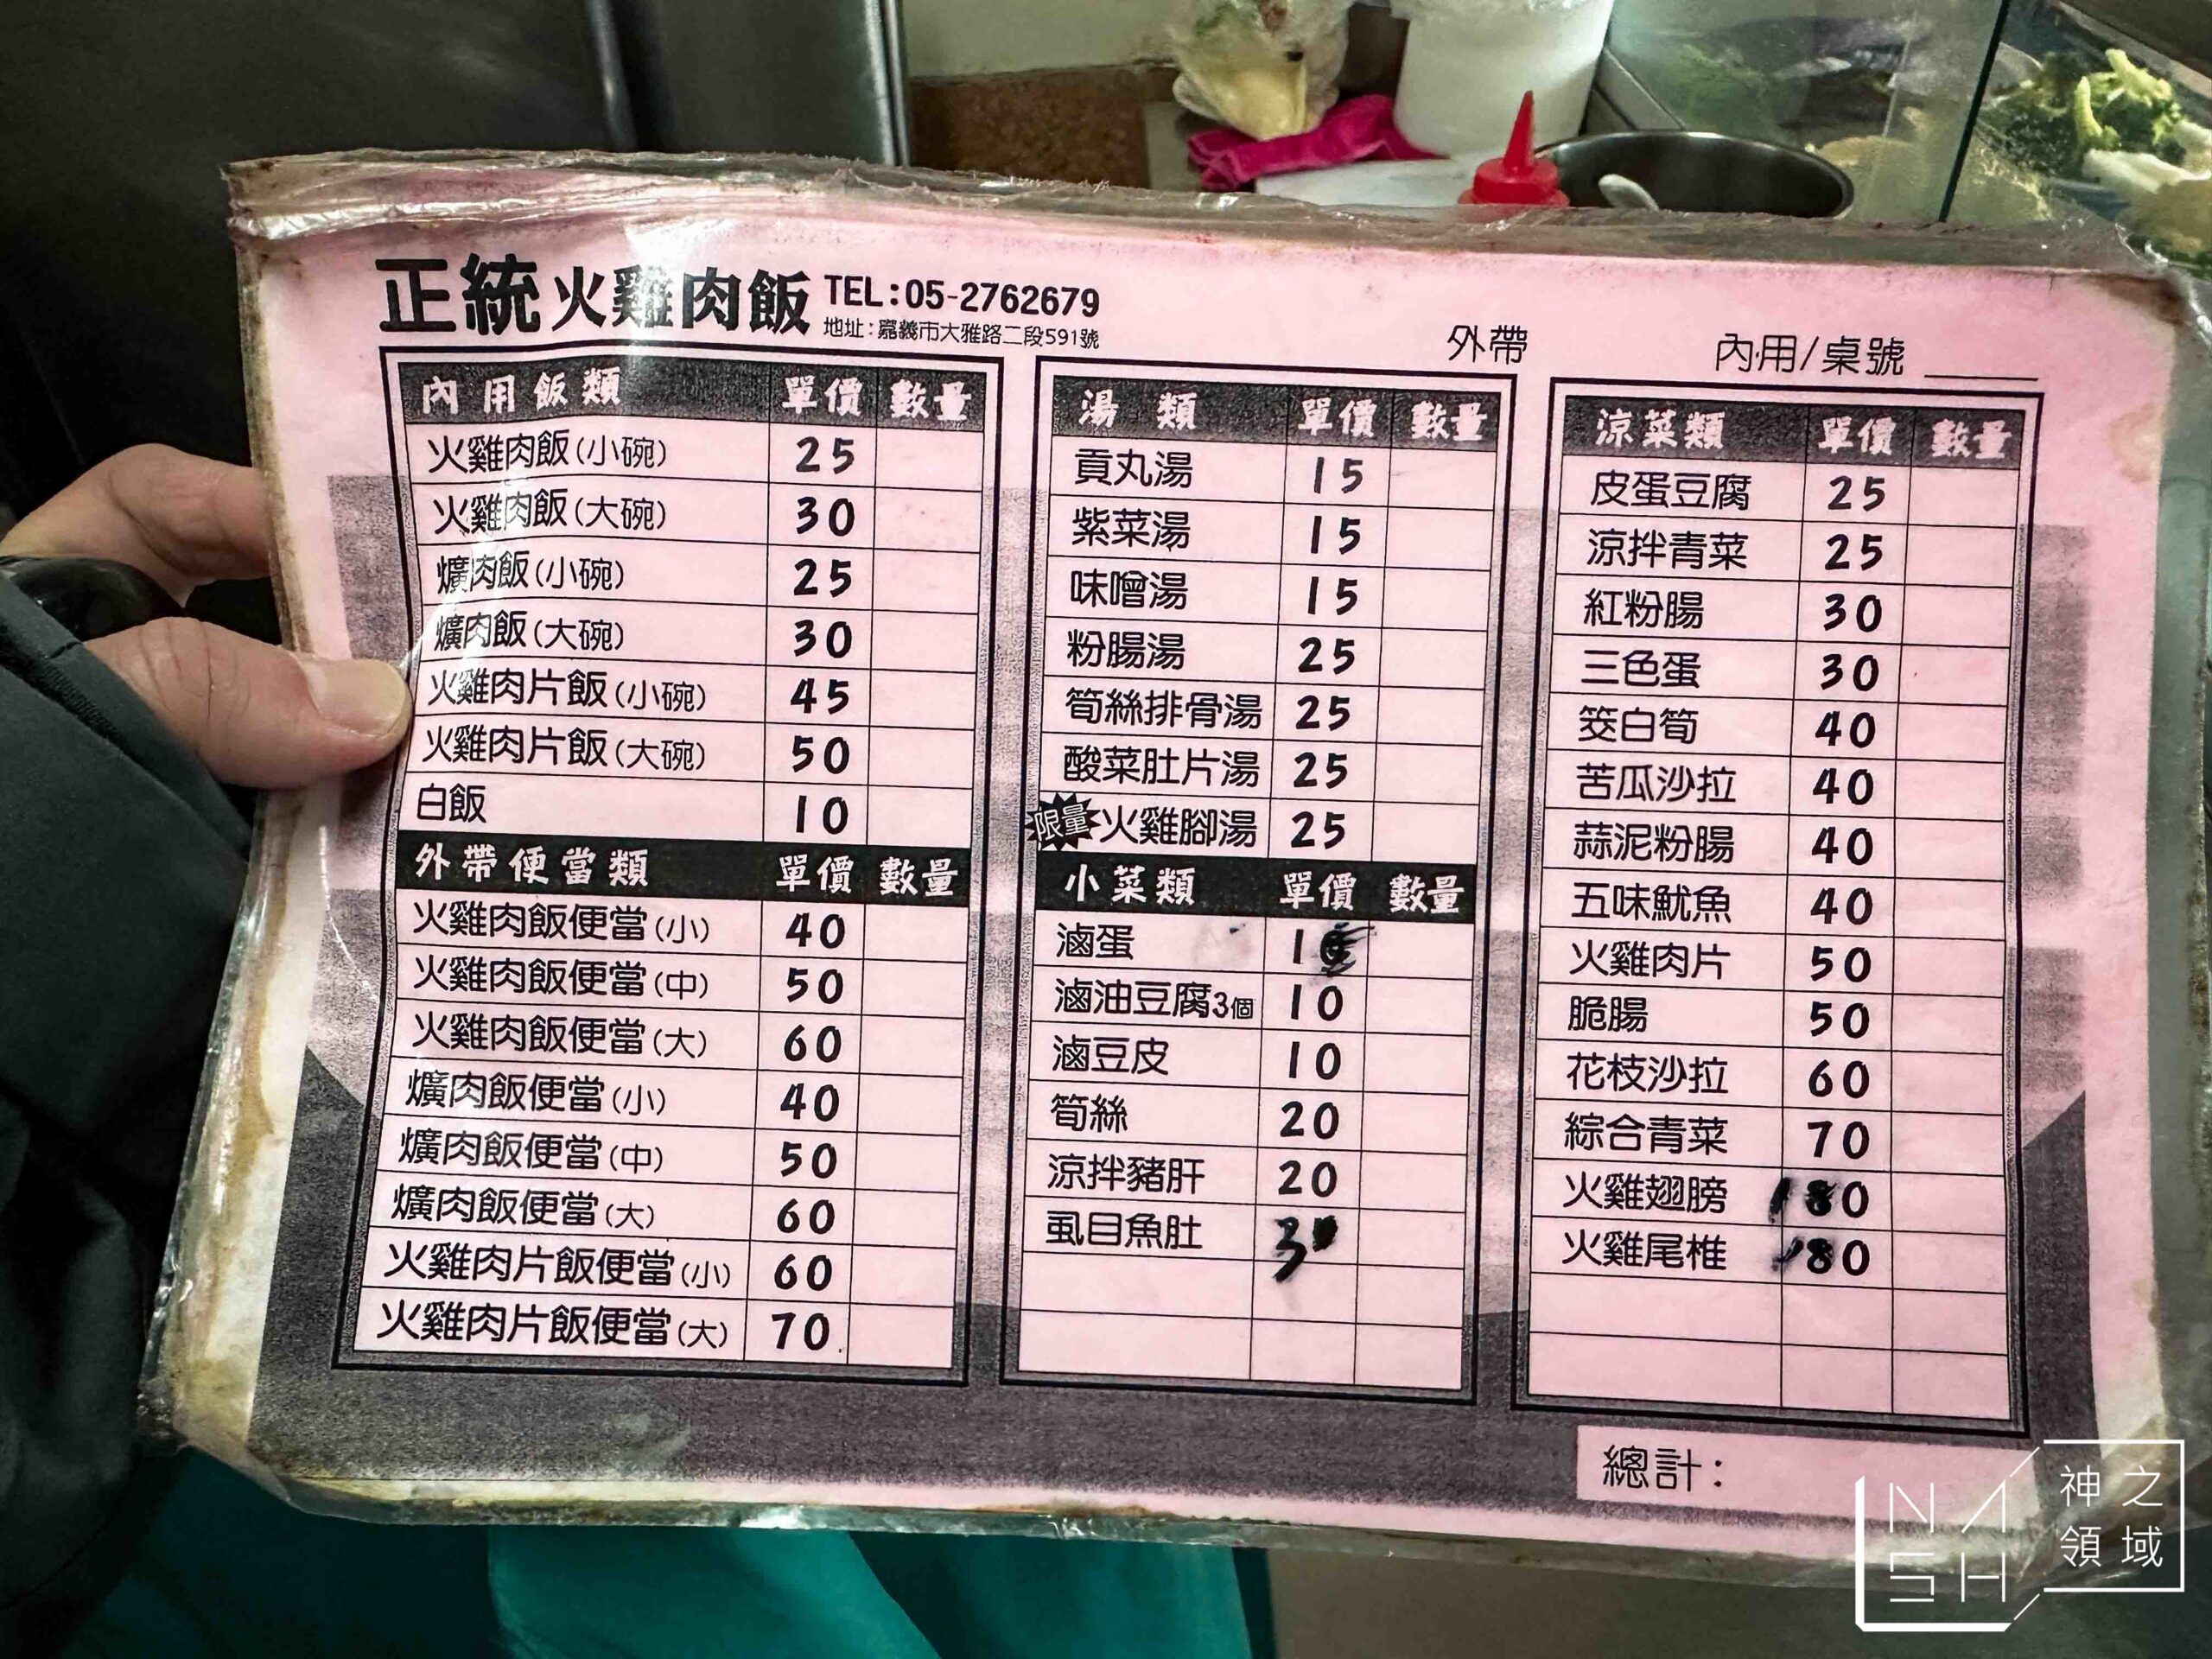 正統火雞肉飯 TEL:05-2762679
地址:嘉義市大雅路二段591號
外帶 內用/桌號
內用飯類 單價 數量
火雞肉飯(小碗) 25
火雞肉飯(大碗) 30
爌肉飯(小碗) 25
爌肉飯(大碗) 30
火雞肉片飯(小碗) 45
火雞肉片飯(大碗) 50
白飯 10
外帶便當類 單價 數量
火雞肉飯便當(小) 40
火雞肉飯便當(中) 50
火雞肉飯便當(大) 60
爌肉飯便當(小) 40
爌肉飯便當(中) 50
爌肉飯便當(大) 60
火雞肉片飯便當(小) 60
火雞肉片飯便當(大) 70
湯類 單價 數量
貢丸湯 15
紫菜湯 15
味噌湯 15
粉腸湯 25
筍絲排骨湯 25
酸菜肚片湯 25
限量 火雞腳湯 25
小菜類 單價 數量
滷蛋
滷油豆腐3個 10
滷豆皮 10
筍絲 20
涼拌豬肝 20
虱目魚肚
涼菜類 單價 數量
皮蛋豆腐 25
涼拌青菜 25
紅粉腸 30
三色蛋 30
筊白筍 40
苦瓜沙拉 40
蒜泥粉腸 40
五味魷魚 40
火雞肉片 50
脆腸 50
花枝沙拉 60
綜合青菜 70
火雞翅膀
火雞尾椎
總計:
NASH
神之
領域